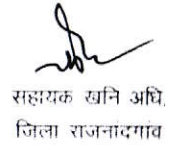 सहायक खनि अधि.
जिला राजनांदगांव